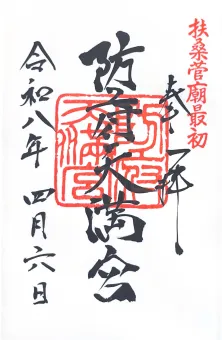 扶桑菅廟最初
奉拝
防府天満宮
防府天満宮
令和八年 四月六日